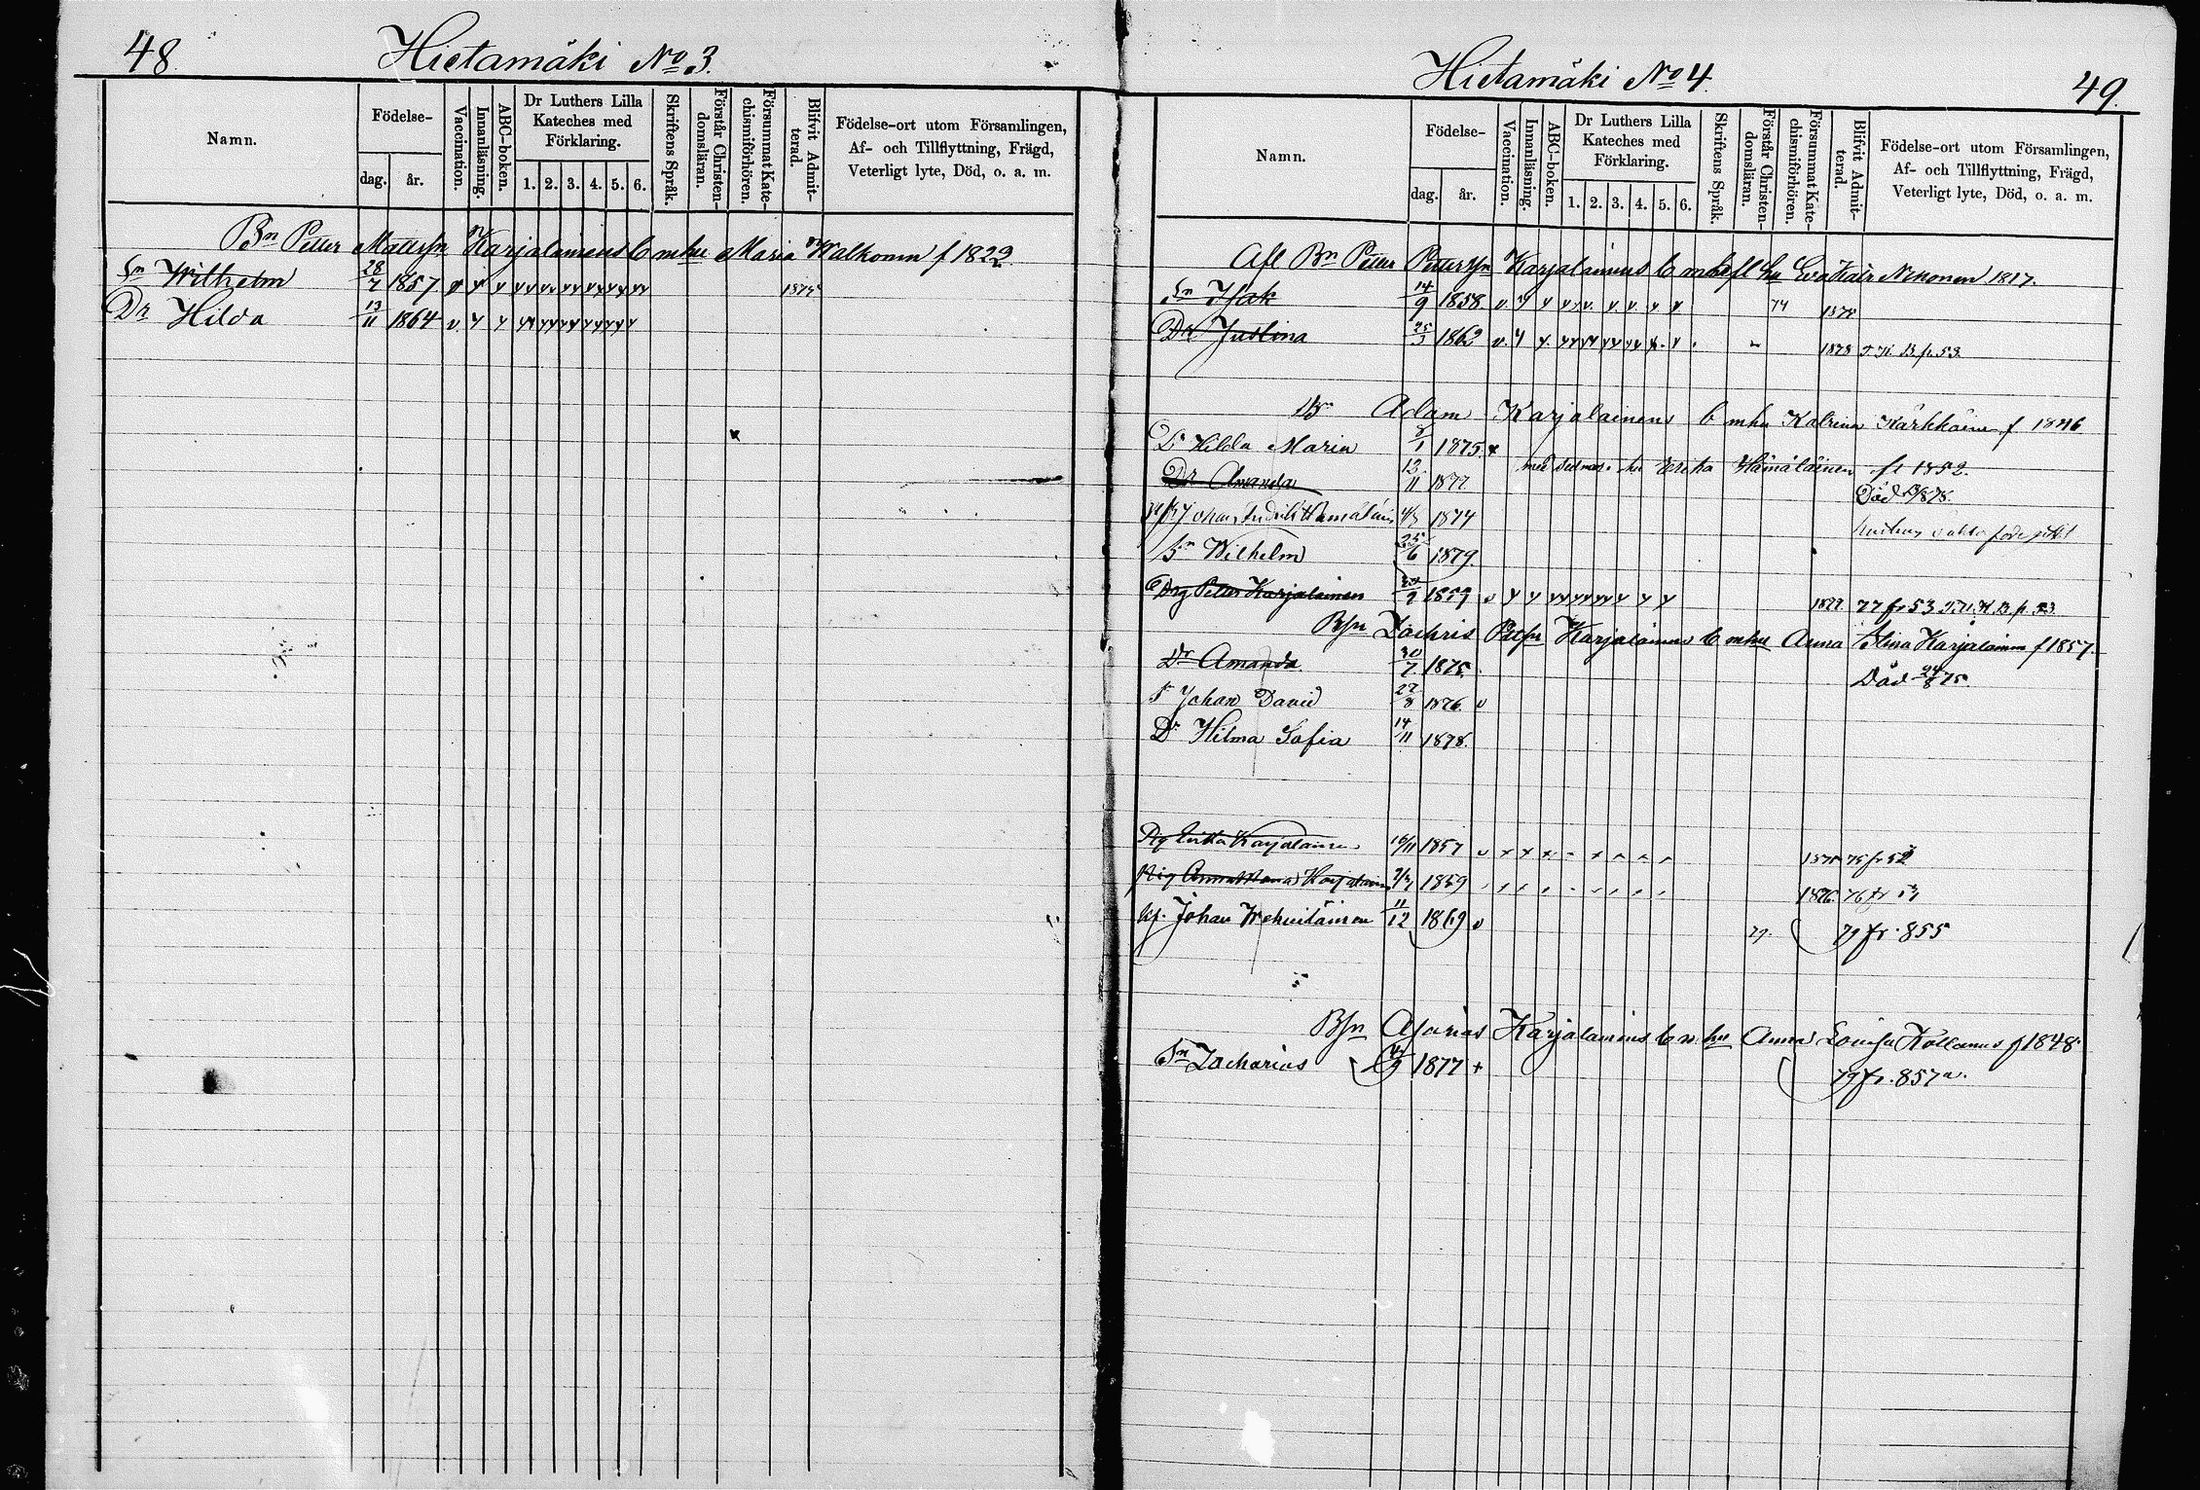 48
Hietamäki No 3.
Namn.
Födelse-
dag.
år.
Vaccination.
Innanläsning.
ABC-boken.
Dr Luthers Lilla
Kateches med
Förklaring.
1. 2. 3. 4. 5. 6.
Skriftens Språk.
Förstår Christen-
domsläran.
Försummat Kate-
chismiförhören.
Blifvit Admit-
terad.
Födelse-ort utom Församlingen,
Af- och Tillflyttning, Frägd,
Veterligt lyte, Död, o. a. m.
Bn Petter Mattsn Karjalainens b m hu Maria Walkonen f 1822
Sn Wilhelm 28/7 1857
Dr Hilda 13/11 1864
Hietamäki No 4.
49.
Namn.
Födelse-
dag.
år.
Vaccination.
Innanläsning.
ABC-boken.
Dr Luthers Lilla
Kateches med
Förklaring.
1. 2. 3. 4. 5. 6.
Skriftens Språk.
Förstår Christen-
domsläran.
Försummat Kate-
chismiförhören.
Blifvit Admit-
terad.
Födelse-ort utom Församlingen,
Af- och Tillflyttning, Frägd,
Veterligt lyte, Död, o. a. m.
Afl Bn Petter Pettersn Karjalainens b m hu Eva Kair Nenonen 1817.
Sn Isak 14/9 1858
Dr Justina 25/3 1862 1878 K. B. p. 53.
Bn Adam Karjalainens b m hu Katrina Kärkkäinen f 1846
Dr Hilda Maria 8/1 1875
med hu Erika Hämäläinen fr 1852.
Dr Amanda 13/11 1877 Död 1878.
Johan Fredrik Hämäläin 1874
Sn Wilhelm 25/6 1879
Drg Petter Karjalainen 1859 77 fr 53 K. B. p. 53.
Bsn Zachris Petsn Karjalainens b m hu Anna Stina Karjalainen f 1857.
Dr Amanda 30/7 1875 Död 24/8 75.
S Johan David 27/8 1876
Dr Hilma Sofia 14/11 1878
Pig Erika Karjalainen 16/11 1857 1875 75 fr 52
Pig Anna Maria Karjalainen 1859 1876 76 fr
Johan Wehviläinen 11/12 1869 79 fr. 855
Bsn Asarias Karjalainens b m hu Anna Lovisa Kottanus f 1848
Sn Zacharias 1877 79 fr. 857a.